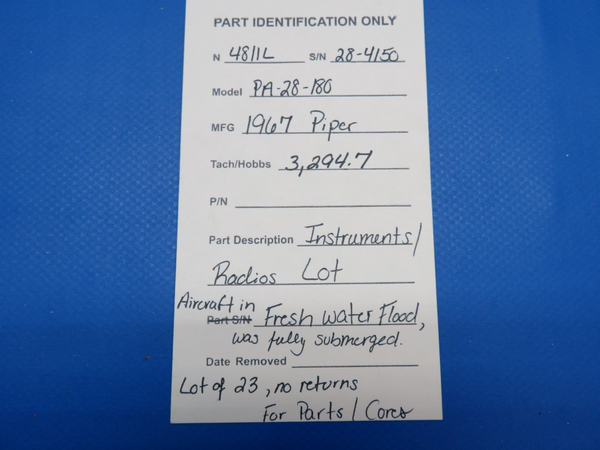 PART IDENTIFICATION ONLY
N 4811L S/N 28-4150
Model PA-28-180
MFG 1967 Piper
Tach/Hobbs 3,294.7
P/N
Part Description Instruments/
Radios Lot
Aircraft in
Part S/N Fresh water Flood,
was fully submerged.
Date Removed
Lot of 23, no returns
For Parts / Cores